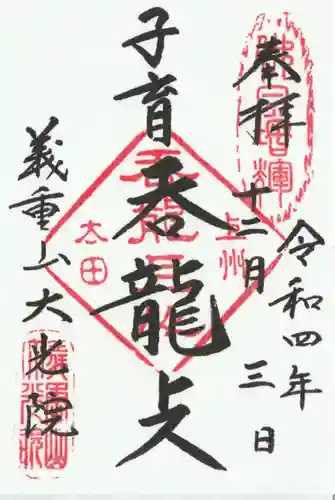 奉拝
令和四年
十二月三日
子育呑龍上人
上州
太田
義重山大光院